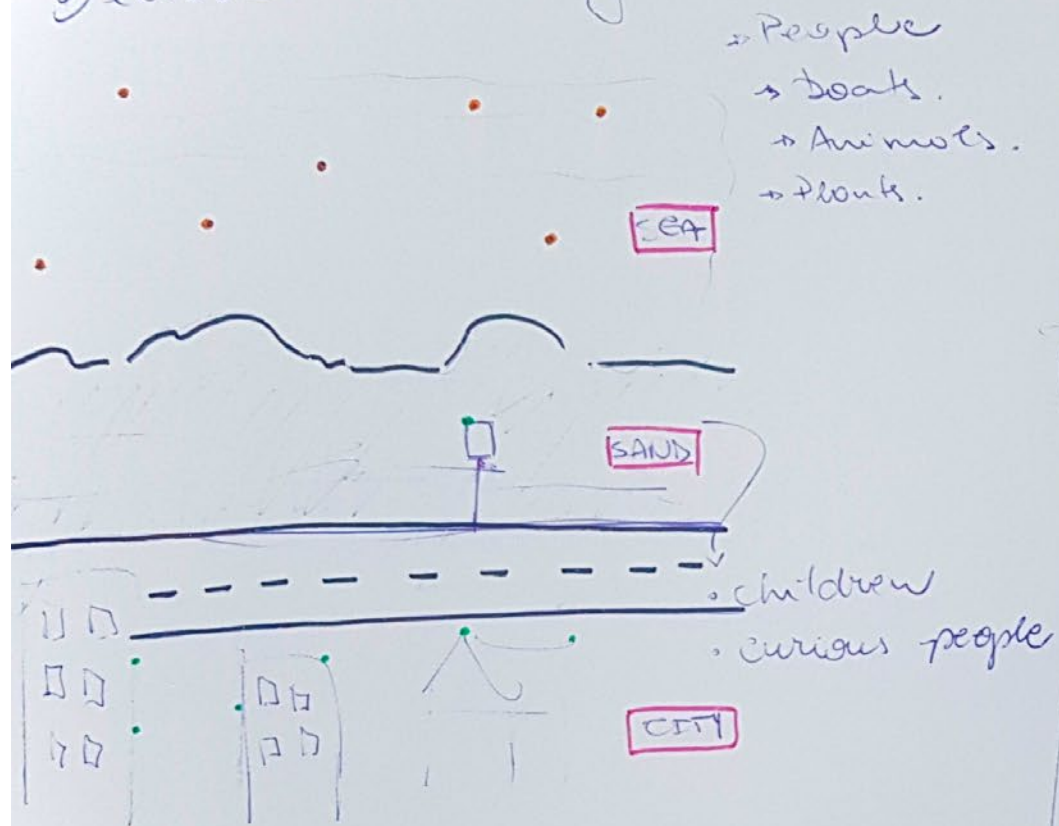 → People
→ boats.
→ Animals.
→ Plants.
SEA
SAND
• children
• curious people
CITY